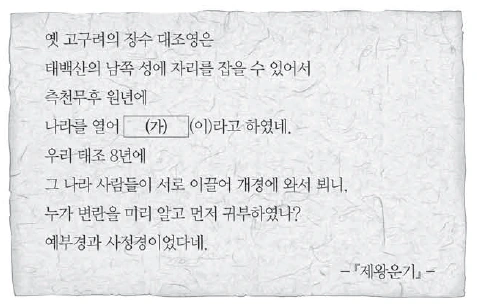 옛 고구려의 장수 대조영은
태백산의 남쪽 성에 자리를 잡을 수 있어서
측천무후 원년에
나라를 열어 (가) (이)라고 하였네.
우리 태조 8년에
그 나라 사람들이 서로 이끌어 개경에 와서 뵈니,
누가 변란을 미리 알고 먼저 귀부하였나?
예부경과 사정경이었다네.
- 『제왕운기』 -